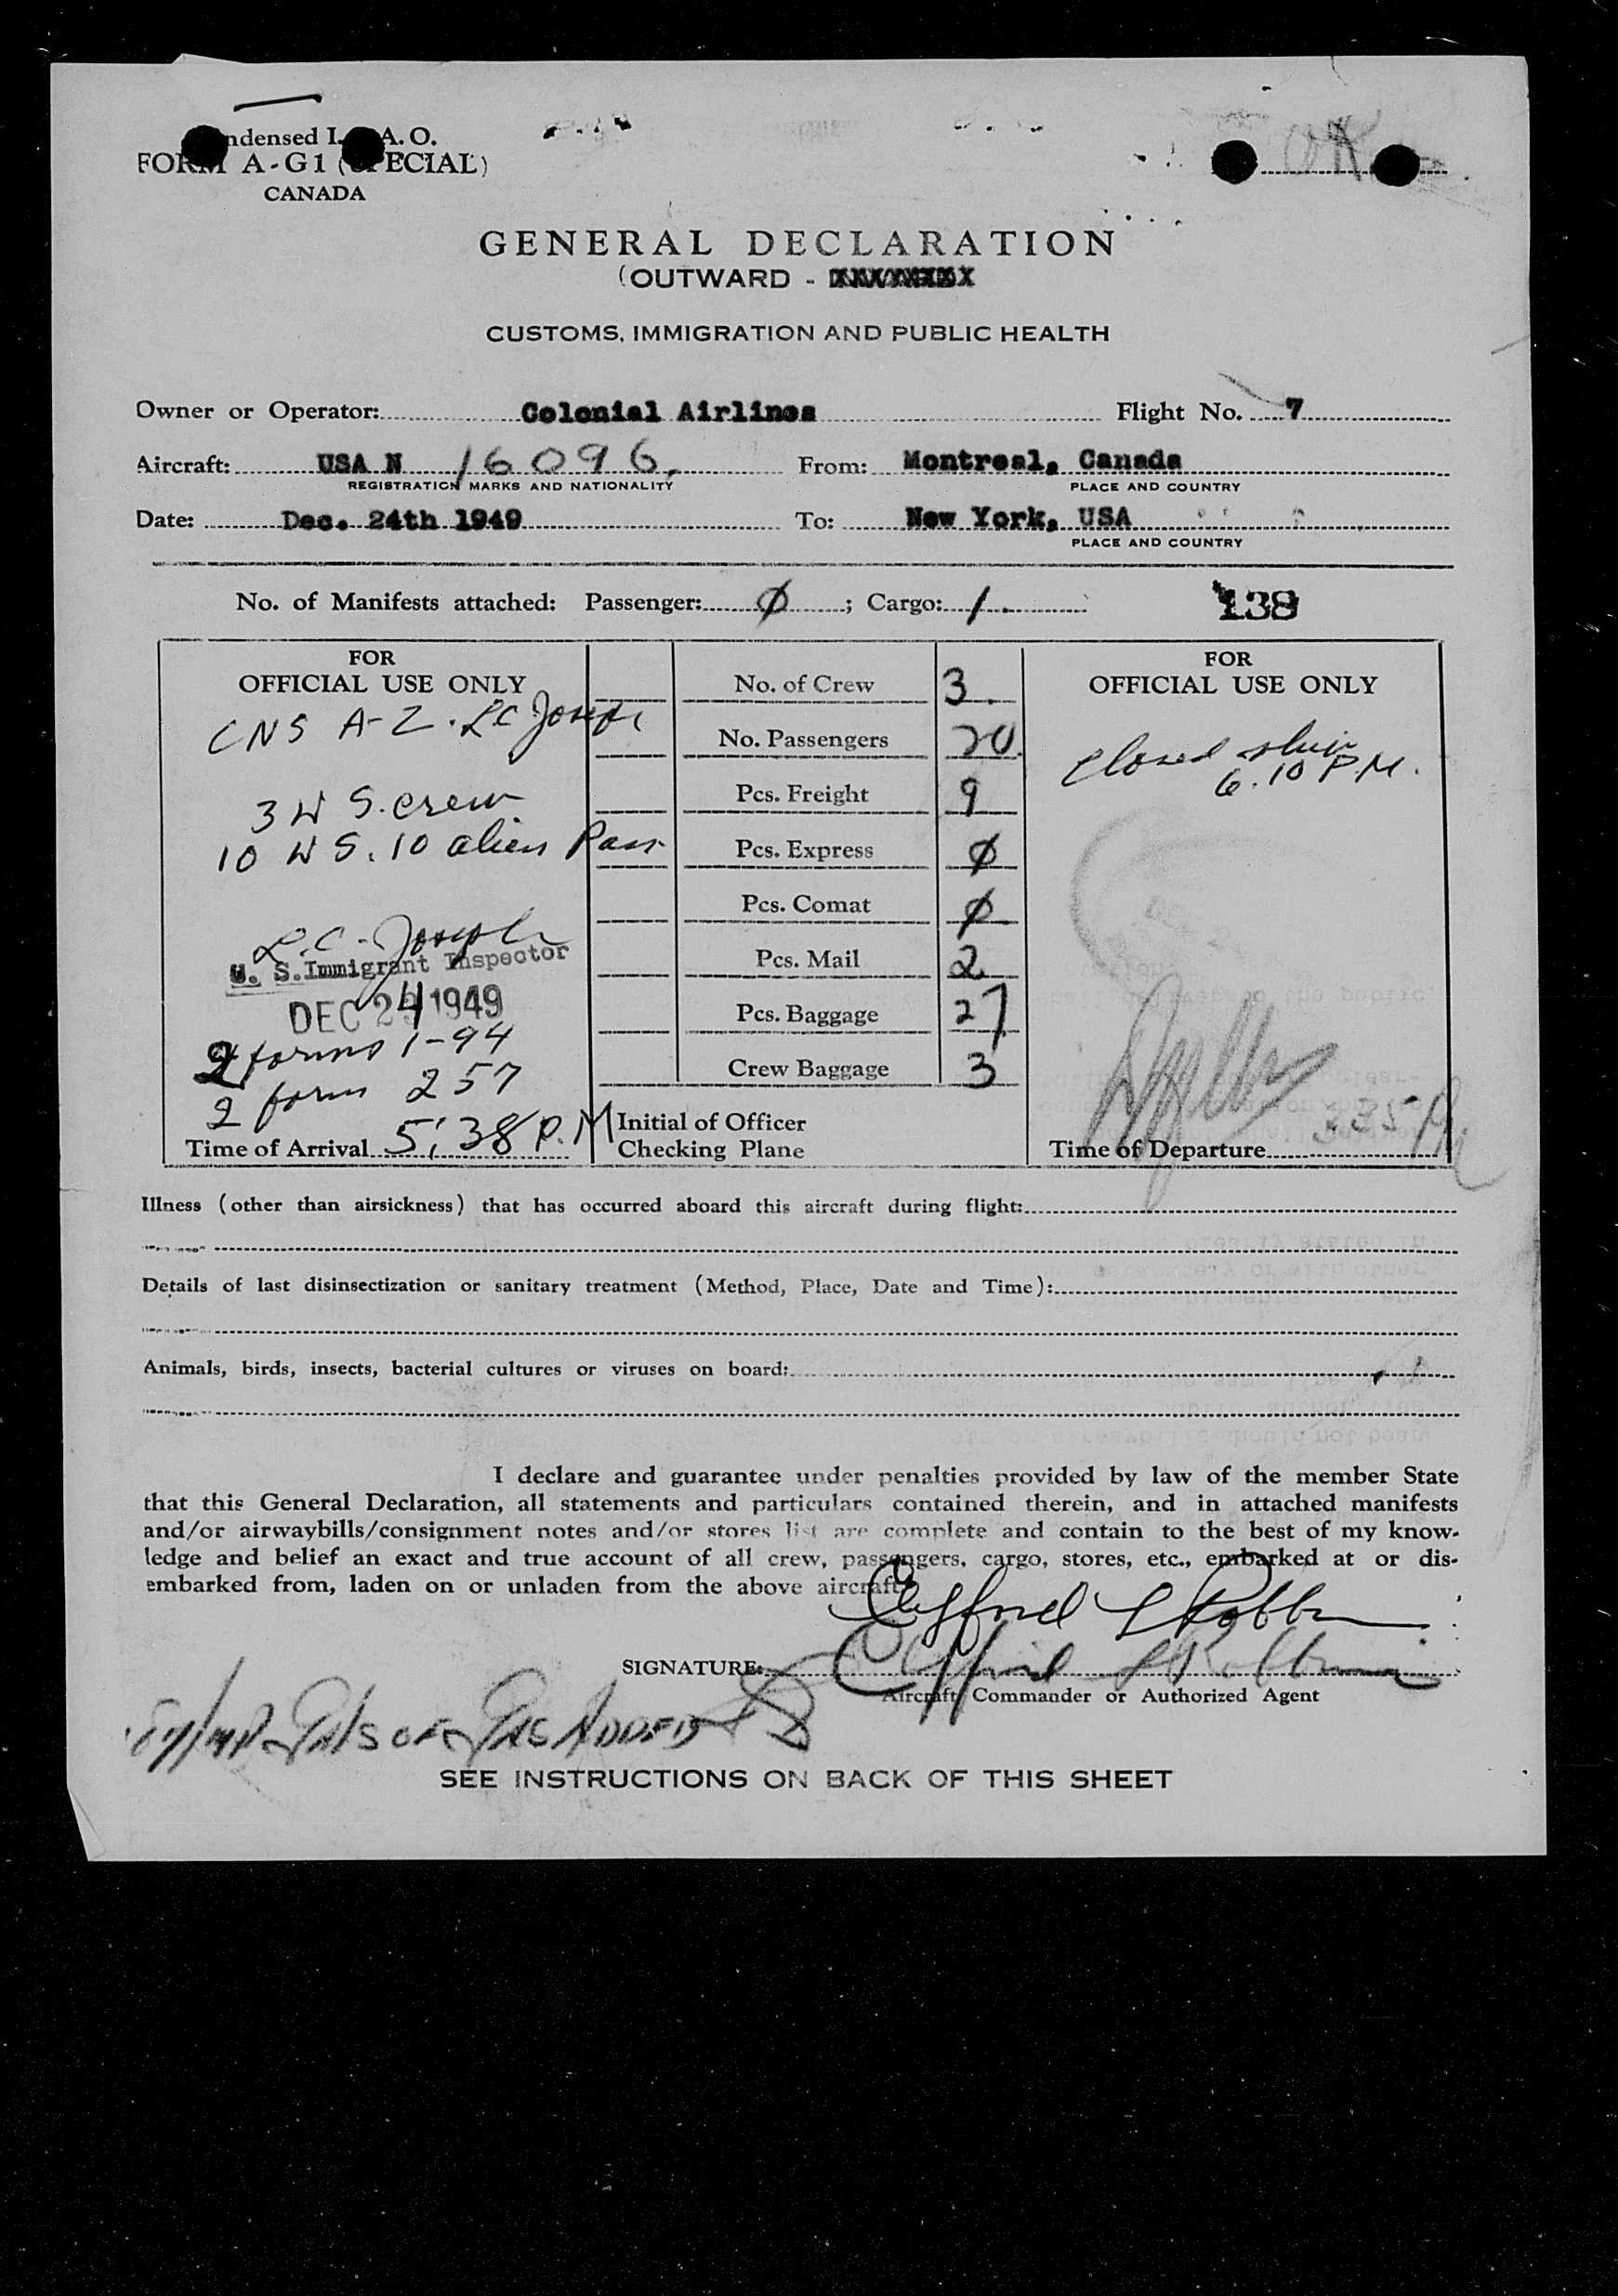 Condensed I.C.A.O.
FORM A-G1 (SPECIAL)
CANADA
OK
GENERAL DECLARATION
(OUTWARD -
CUSTOMS, IMMIGRATION AND PUBLIC HEALTH
Owner or Operator: Colonial Airlines Flight No. 7
Aircraft: USA N 16096. From: Montreal, Canada
REGISTRATION MARKS AND NATIONALITY PLACE AND COUNTRY
Date: Dec. 24th 1949 To: New York, USA
PLACE AND COUNTRY
No. of Manifests attached: Passenger: Ø ; Cargo: 1. 138
FOR
OFFICIAL USE ONLY
CNS A-2. LC Joseph
3 W S. crew
10 W S. 10 alien Pass
L.C. Joseph
U. S. Immigrant Inspector
DEC 24 1949
2 forms 1-94
2 form 257
Time of Arrival 5:38 P.M
No. of Crew 3.
No. Passengers 20.
Pcs. Freight 9
Pcs. Express Ø
Pcs. Comat Ø
Pcs. Mail 2
Pcs. Baggage 27
Crew Baggage 3
Initial of Officer
Checking Plane
FOR
OFFICIAL USE ONLY
Closed ship
6.10 P.M.
Time of Departure 335
Illness (other than airsickness) that has occurred aboard this aircraft during flight:
Details of last disinsectization or sanitary treatment (Method, Place, Date and Time):
Animals, birds, insects, bacterial cultures or viruses on board:
I declare and guarantee under penalties provided by law of the member State
that this General Declaration, all statements and particulars contained therein, and in attached manifests
and/or airwaybills/consignment notes and/or stores list are complete and contain to the best of my know-
ledge and belief an exact and true account of all crew, passengers, cargo, stores, etc., embarked at or dis-
embarked from, laden on or unladen from the above aircraft.
Clifford
SIGNATURE: Clifford
Aircraft Commander or Authorized Agent
Gals of Gas Added
SEE INSTRUCTIONS ON BACK OF THIS SHEET